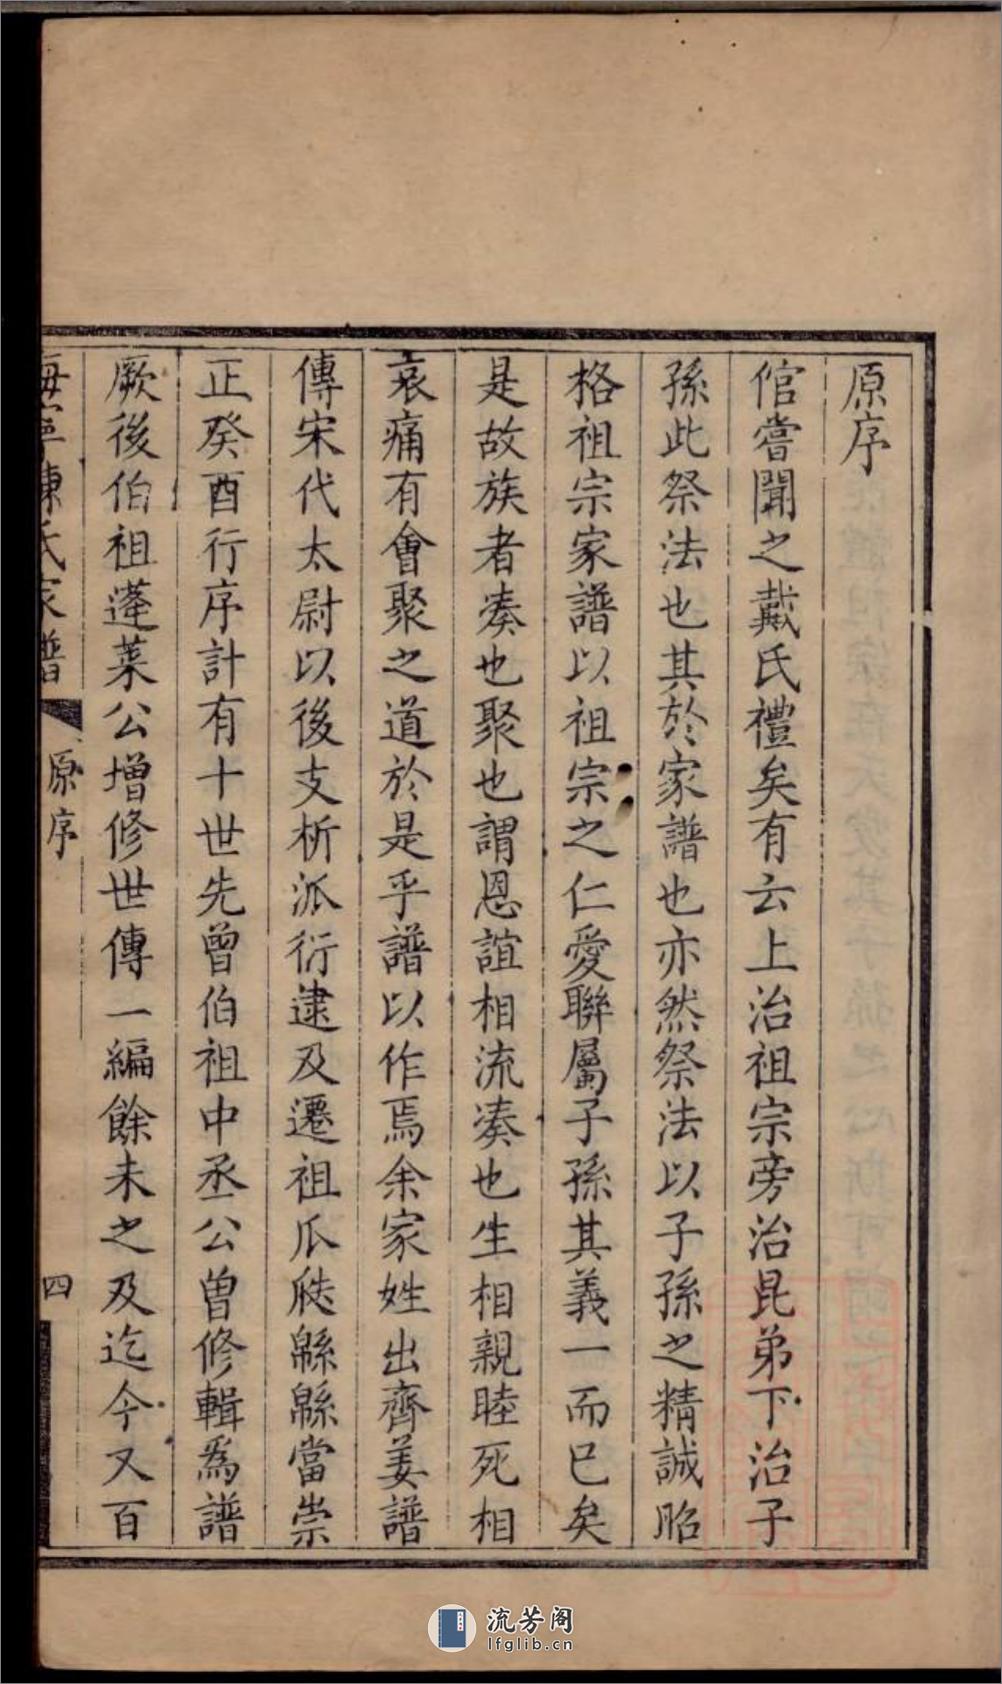 原序
倌嘗聞之戴氏禮矣有云上治祖宗旁治昆弟下治子
孫此祭法也其於家譜也亦然祭法以子孫之精誠昭
格祖宗家譜以祖宗之仁愛聯屬子孫其義一而已矣
是故族者凑也聚也謂恩誼相流凑也生相親睦死相
哀痛有會聚之道於是乎譜以作焉余家姓出齊姜譜
傳宋代太尉以後支析派衍逮及遷祖瓜瓞緜緜當崇
正癸酉行序計有十世先曾伯祖中丞公曾修輯爲譜
厥後伯祖蓬莱公增修世傳一編餘未之及迄今又百
海寧陳氏家譜
原序
四
流芳阁
lfglib.cn